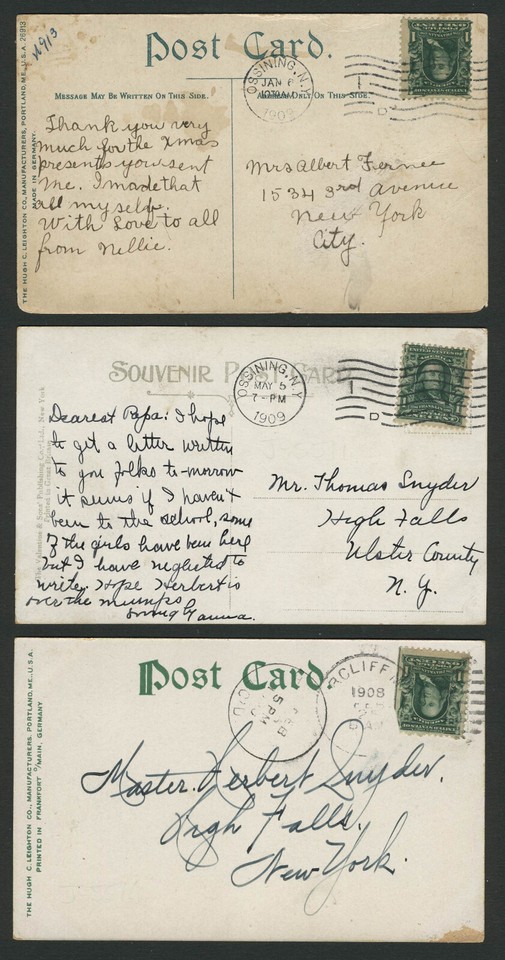 N913
Post Card.
OSSINING, N.Y.
JAN 6
1909
MESSAGE MAY BE WRITTEN ON THIS SIDE.
ADDRESS ONLY ON THIS SIDE.
THE HUGH C. LEIGHTON CO., MANUFACTURERS, PORTLAND, ME., U.S.A. 26913
MADE IN GERMANY.
Thank you very
much for the Xmas
presents you sent
me. I made that
all my self.
With Love to all
from Nellie.
Mrs Albert Fernee
1534 3rd Avenue
New York
City.
SOUVENIR POST CARD
OSSINING, N.Y.
MAY 5
7-PM
1909
D
The Valentine & Sons' Publishing Co., Ltd., New York
Printed in Great Britain
Dearest Papa: I hope
to get a letter written
to you folks to-morrow
it seems if I haven't
been to the school, some
of the girls have been here
but I have neglected to
write. Hope Herbert is
over the mumps
Mr. Thomas Snyder
High Falls
Ulster County
N.Y.
Post Card.
5 PM
1908
THE HUGH C. LEIGHTON CO., MANUFACTURERS, PORTLAND, ME., U.S.A.
PRINTED IN FRANKFORT o/MAIN, GERMANY
Master. Herbert Snyder.
High Falls,
New York.